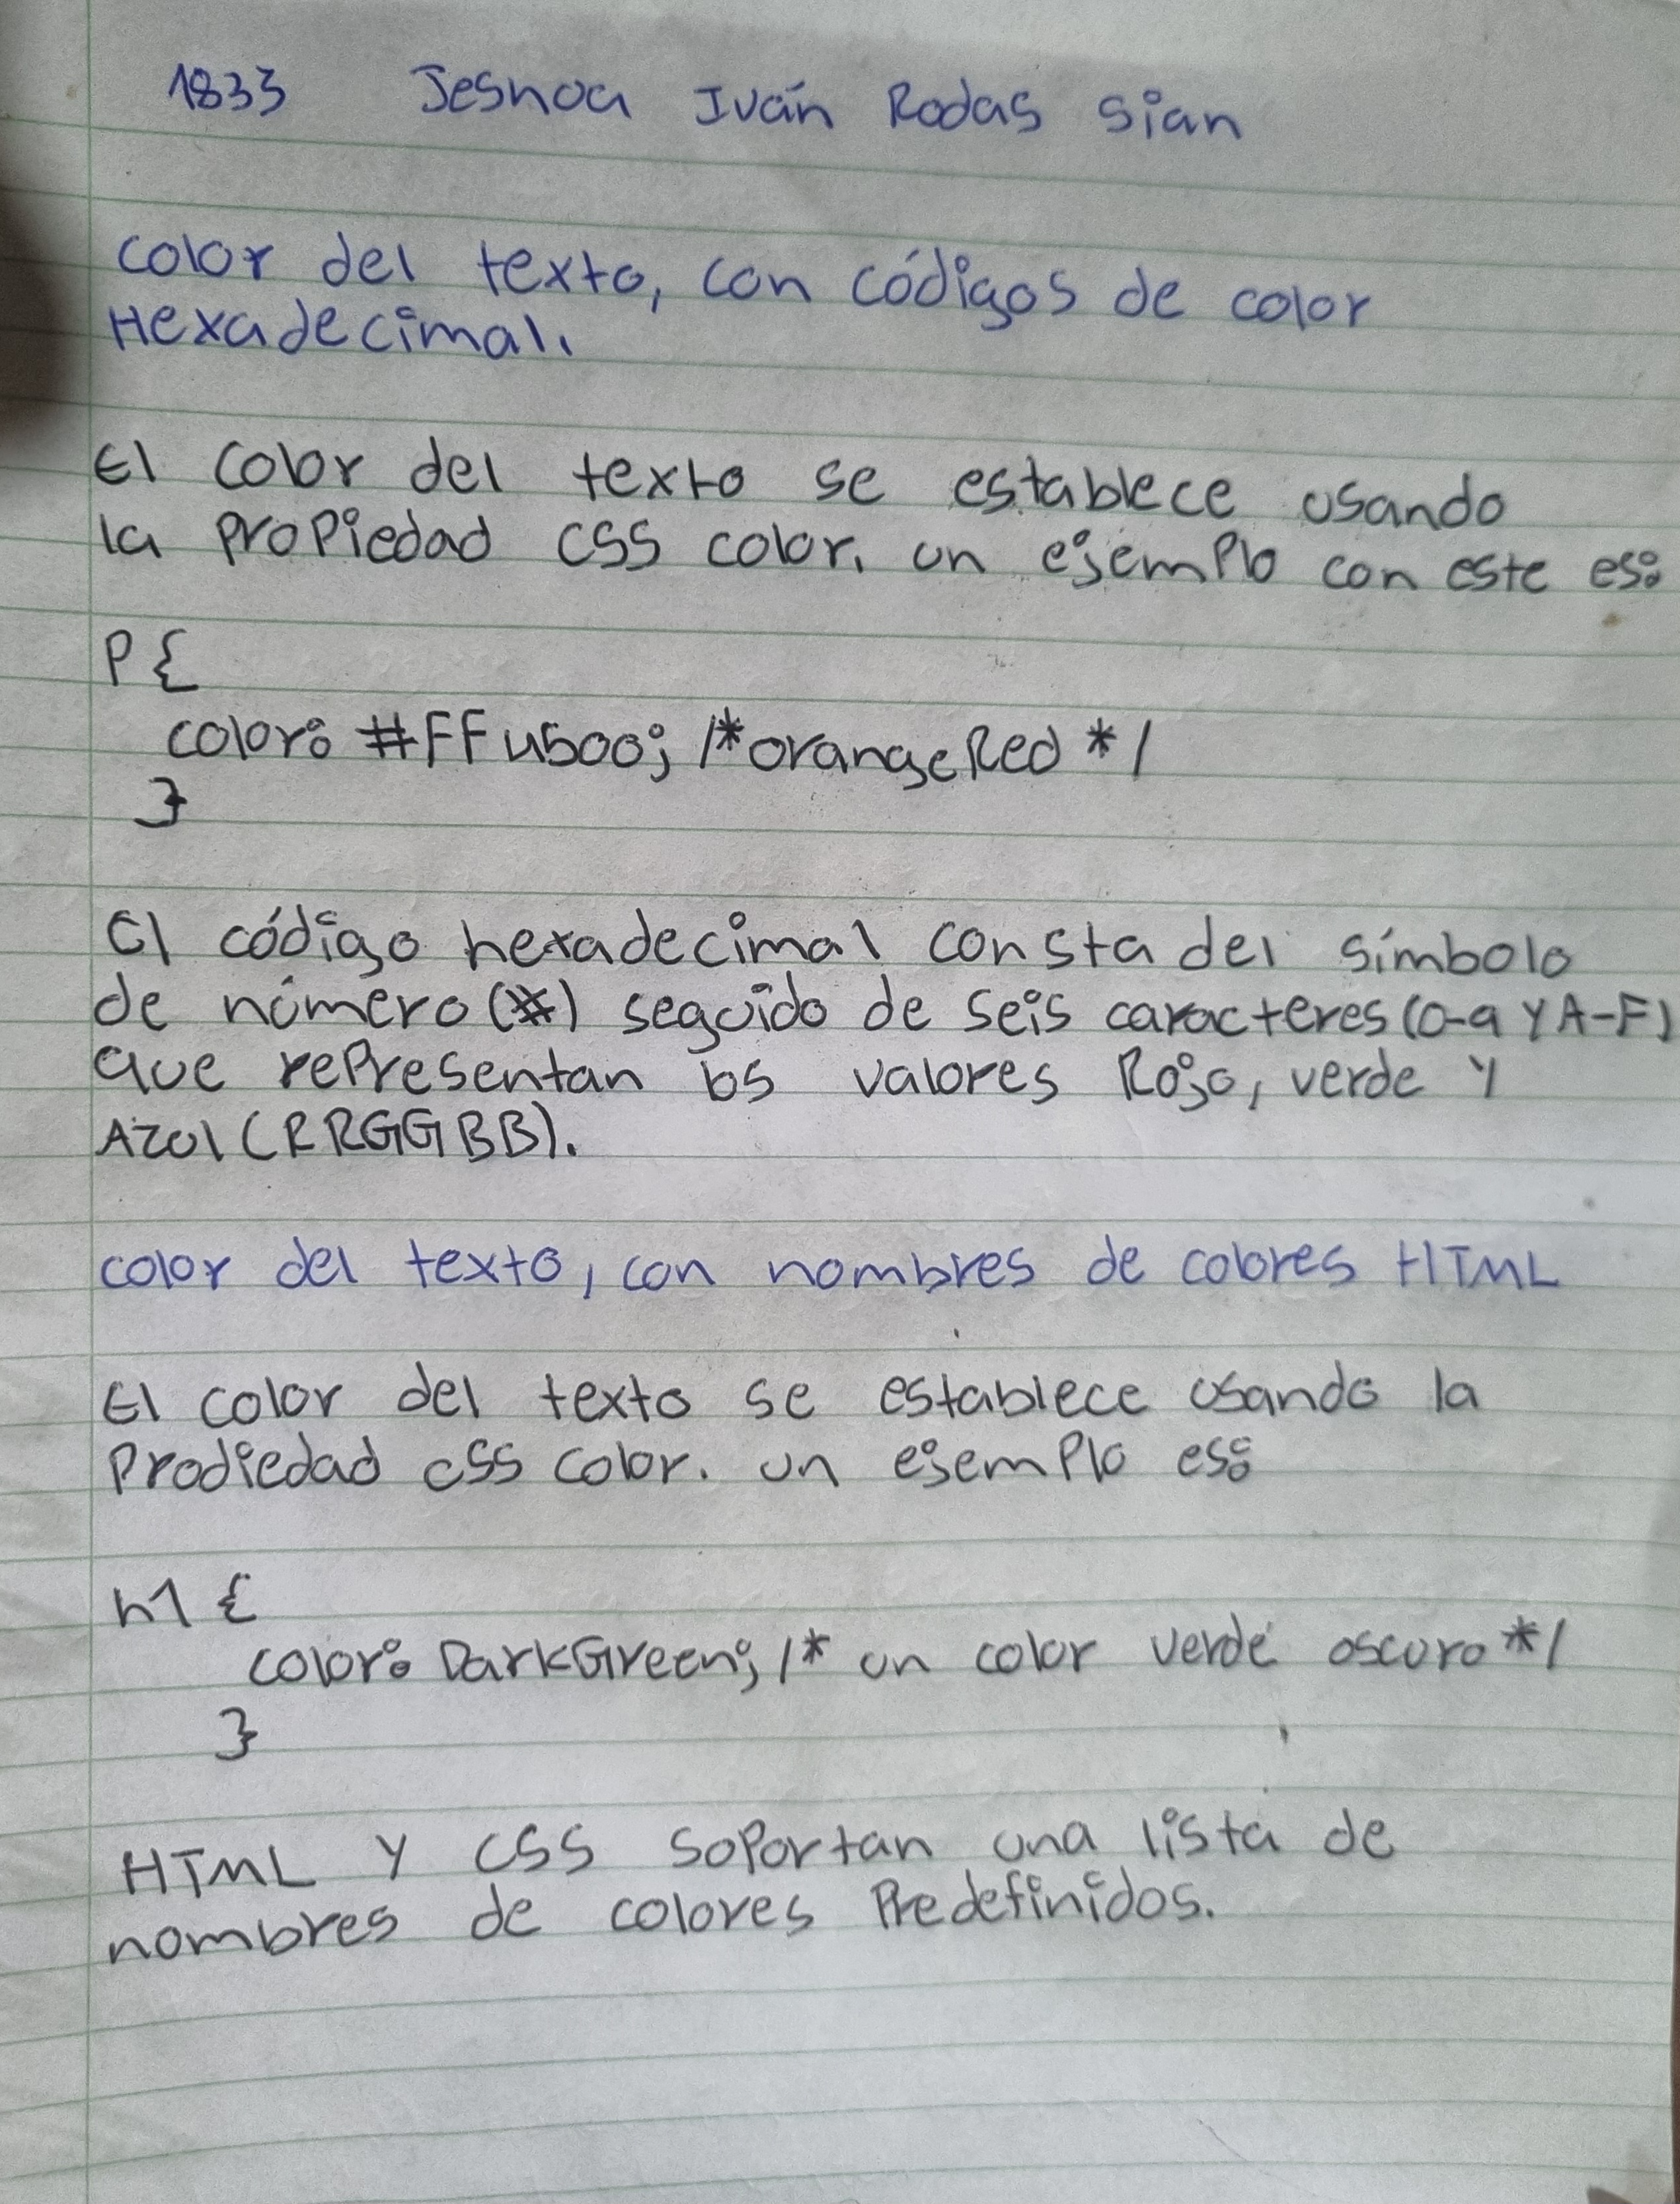 1833 Jesnoa Iván Rodas Sian
color del texto, con códigos de color
Hexadecimal.
El color del texto se establece usando
la propiedad CSS color. un ejemplo con este es:
P {
color: #FF4500; /*orangeRed */
}
El código hexadecimal consta del símbolo
de número (#) seguido de seis caracteres (0-9 y A-F)
que representan los valores Rojo, verde y
Azul (RRGGBB).
color del texto, con nombres de colores HTML
El color del texto se establece usando la
Prodiedad CSS color. un ejemplo es:
h1 {
color: DarkGreen; /* un color verde oscuro */
}
HTML y CSS soportan una lista de
nombres de colores Predefinidos.